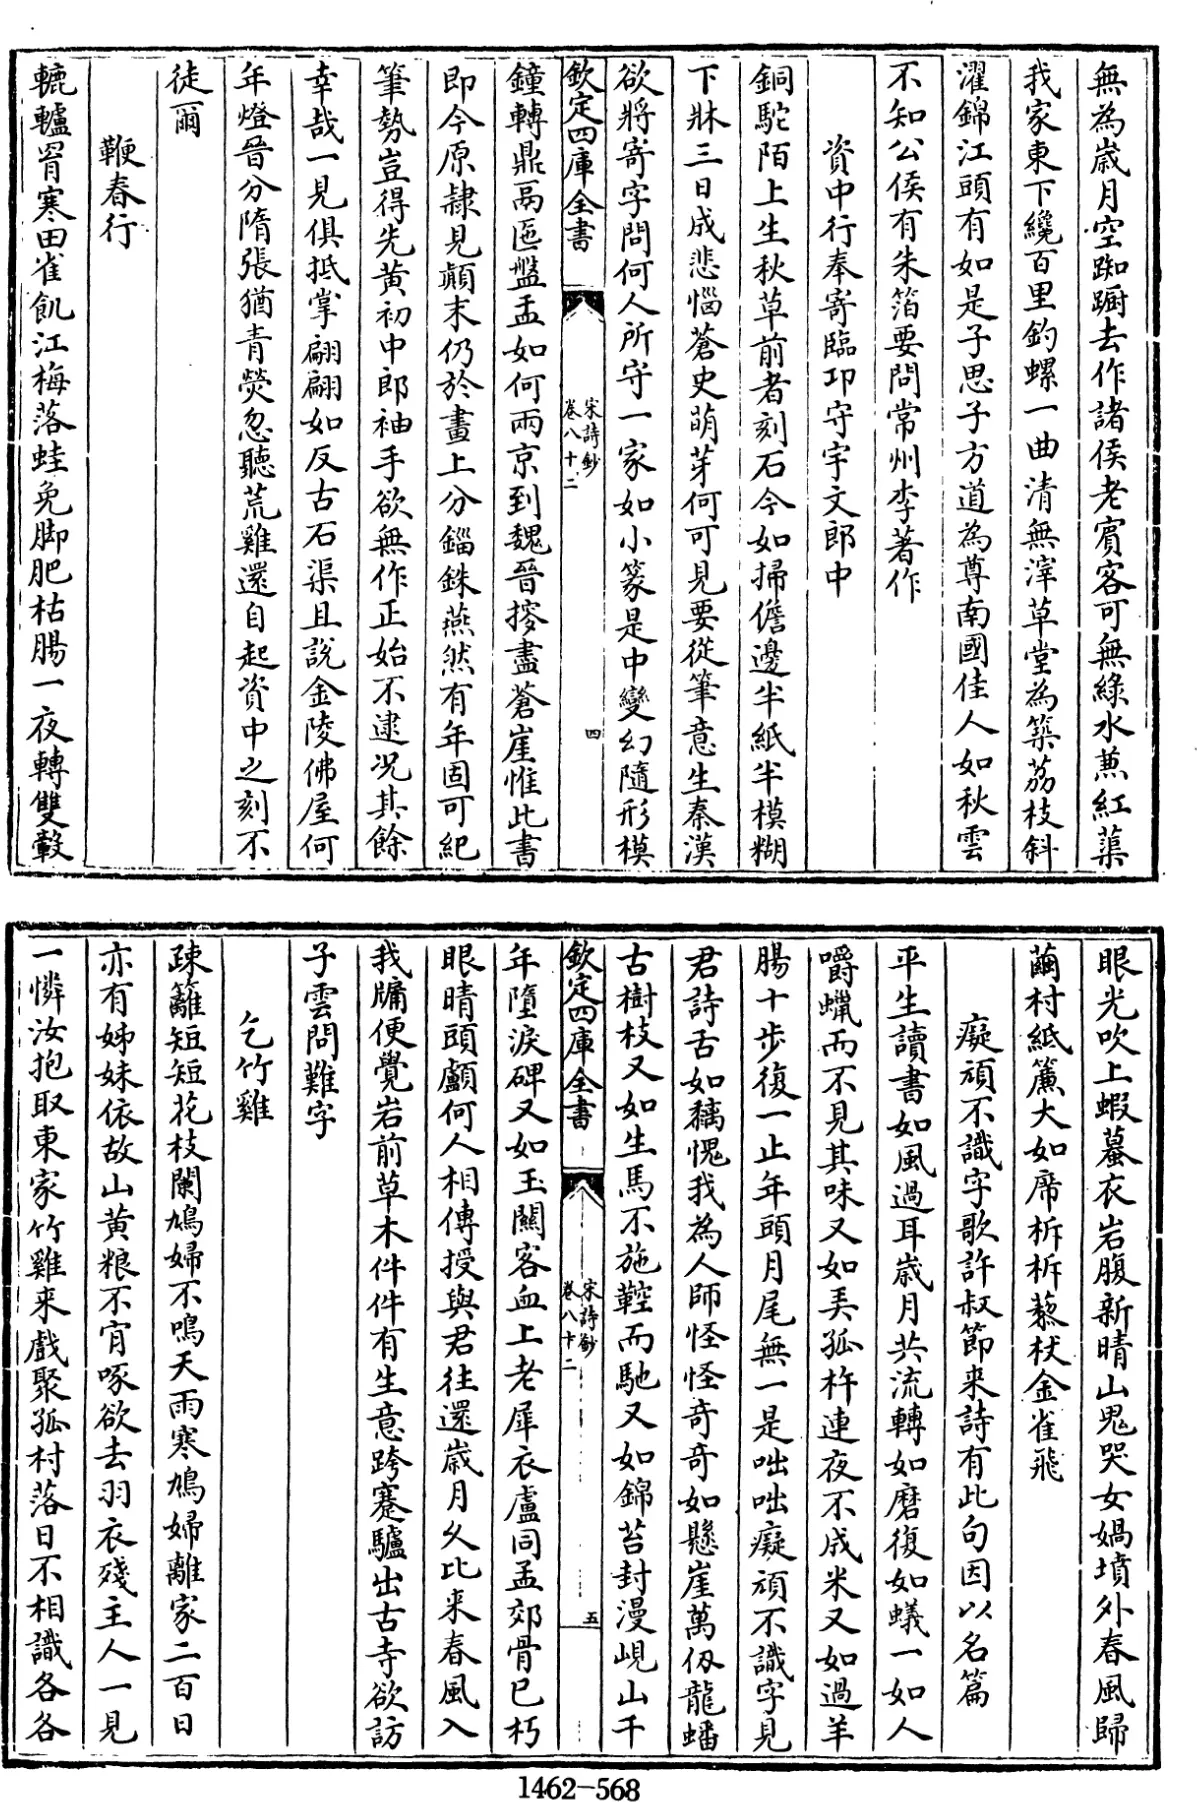 無為歳月空踟蹰去作諸侯老賓客可無綠水蕉紅蕖
我家東下纔百里釣螺一曲清無滓草堂為築荔枝斜
濯錦江頭有如是子思子方道為尊南國佳人如秋雲
不知公侯有朱箔要問常州李著作
資中行奉寄臨邛守宇文郎中
銅駝陌上生秋草前者刻石今如掃儋邊半紙半模糊
下牀三日成悲惱蒼史萌芽何可見要從筆意生秦漢
欲將寄字問何人所守一家如小篆是中變幻隨形模
欽定四庫全書
宋詩鈔
卷八十二
四
鐘轉鼎鬲區盤盂如何兩京到魏晉搜盡蒼崖惟此書
即今原隸見顛末仍於畫上分錙銖燕然有年固可紀
筆勢豈得先黄初中郎袖手欲無作正始不逮况其餘
幸哉一見俱抵掌翩翩如反古石渠且說金陵佛屋何
年燈晉分隋張猶青熒忽聽荒雞還自起資中之刻不
徒爾
鞭春行
轆轤胃寒田雀飢江梅落蛙兔脚肥枯腸一夜轉雙轂
眼光吹上蝦蟇衣岩腹新晴山鬼哭女媧墳外春風歸
繭村紙簾大如席柝柝藜杖金雀飛
癡頑不識字歌許叔節来詩有此句因以名篇
平生讀書如風過耳歳月共流轉如磨復如蟻一如人
嚼蠟而不見其味又如美孤杵連夜不成米又如過羊
腸十步復一止年頭月尾無一是咄咄癡頑不識字見
君詩舌如㵢愧我為人師怪怪奇奇如懸崖萬仭龍蟠
古樹枝又如生馬不施鞚而馳又如錦苔封漫峴山千
欽定四庫全書
宋詩鈔
卷八十二
五
年墮淚碑又如玉關客血上老犀衣盧同孟郊骨已朽
眼晴頭顱何人相傳授與君往還歳月久比来春風入
我牖便覺岩前草木件件有生意跨蹇驢出古寺欲訪
子雲問難字
乞竹雞
疎籬短短花枝闌鳩婦不鳴天雨寒鳩婦離家二百日
亦有姊妹依故山黄粮不肯啄欲去羽衣殘主人一見
一憐汝抱取東家竹雞来戲聚孤村落日不相識各各
1462-568